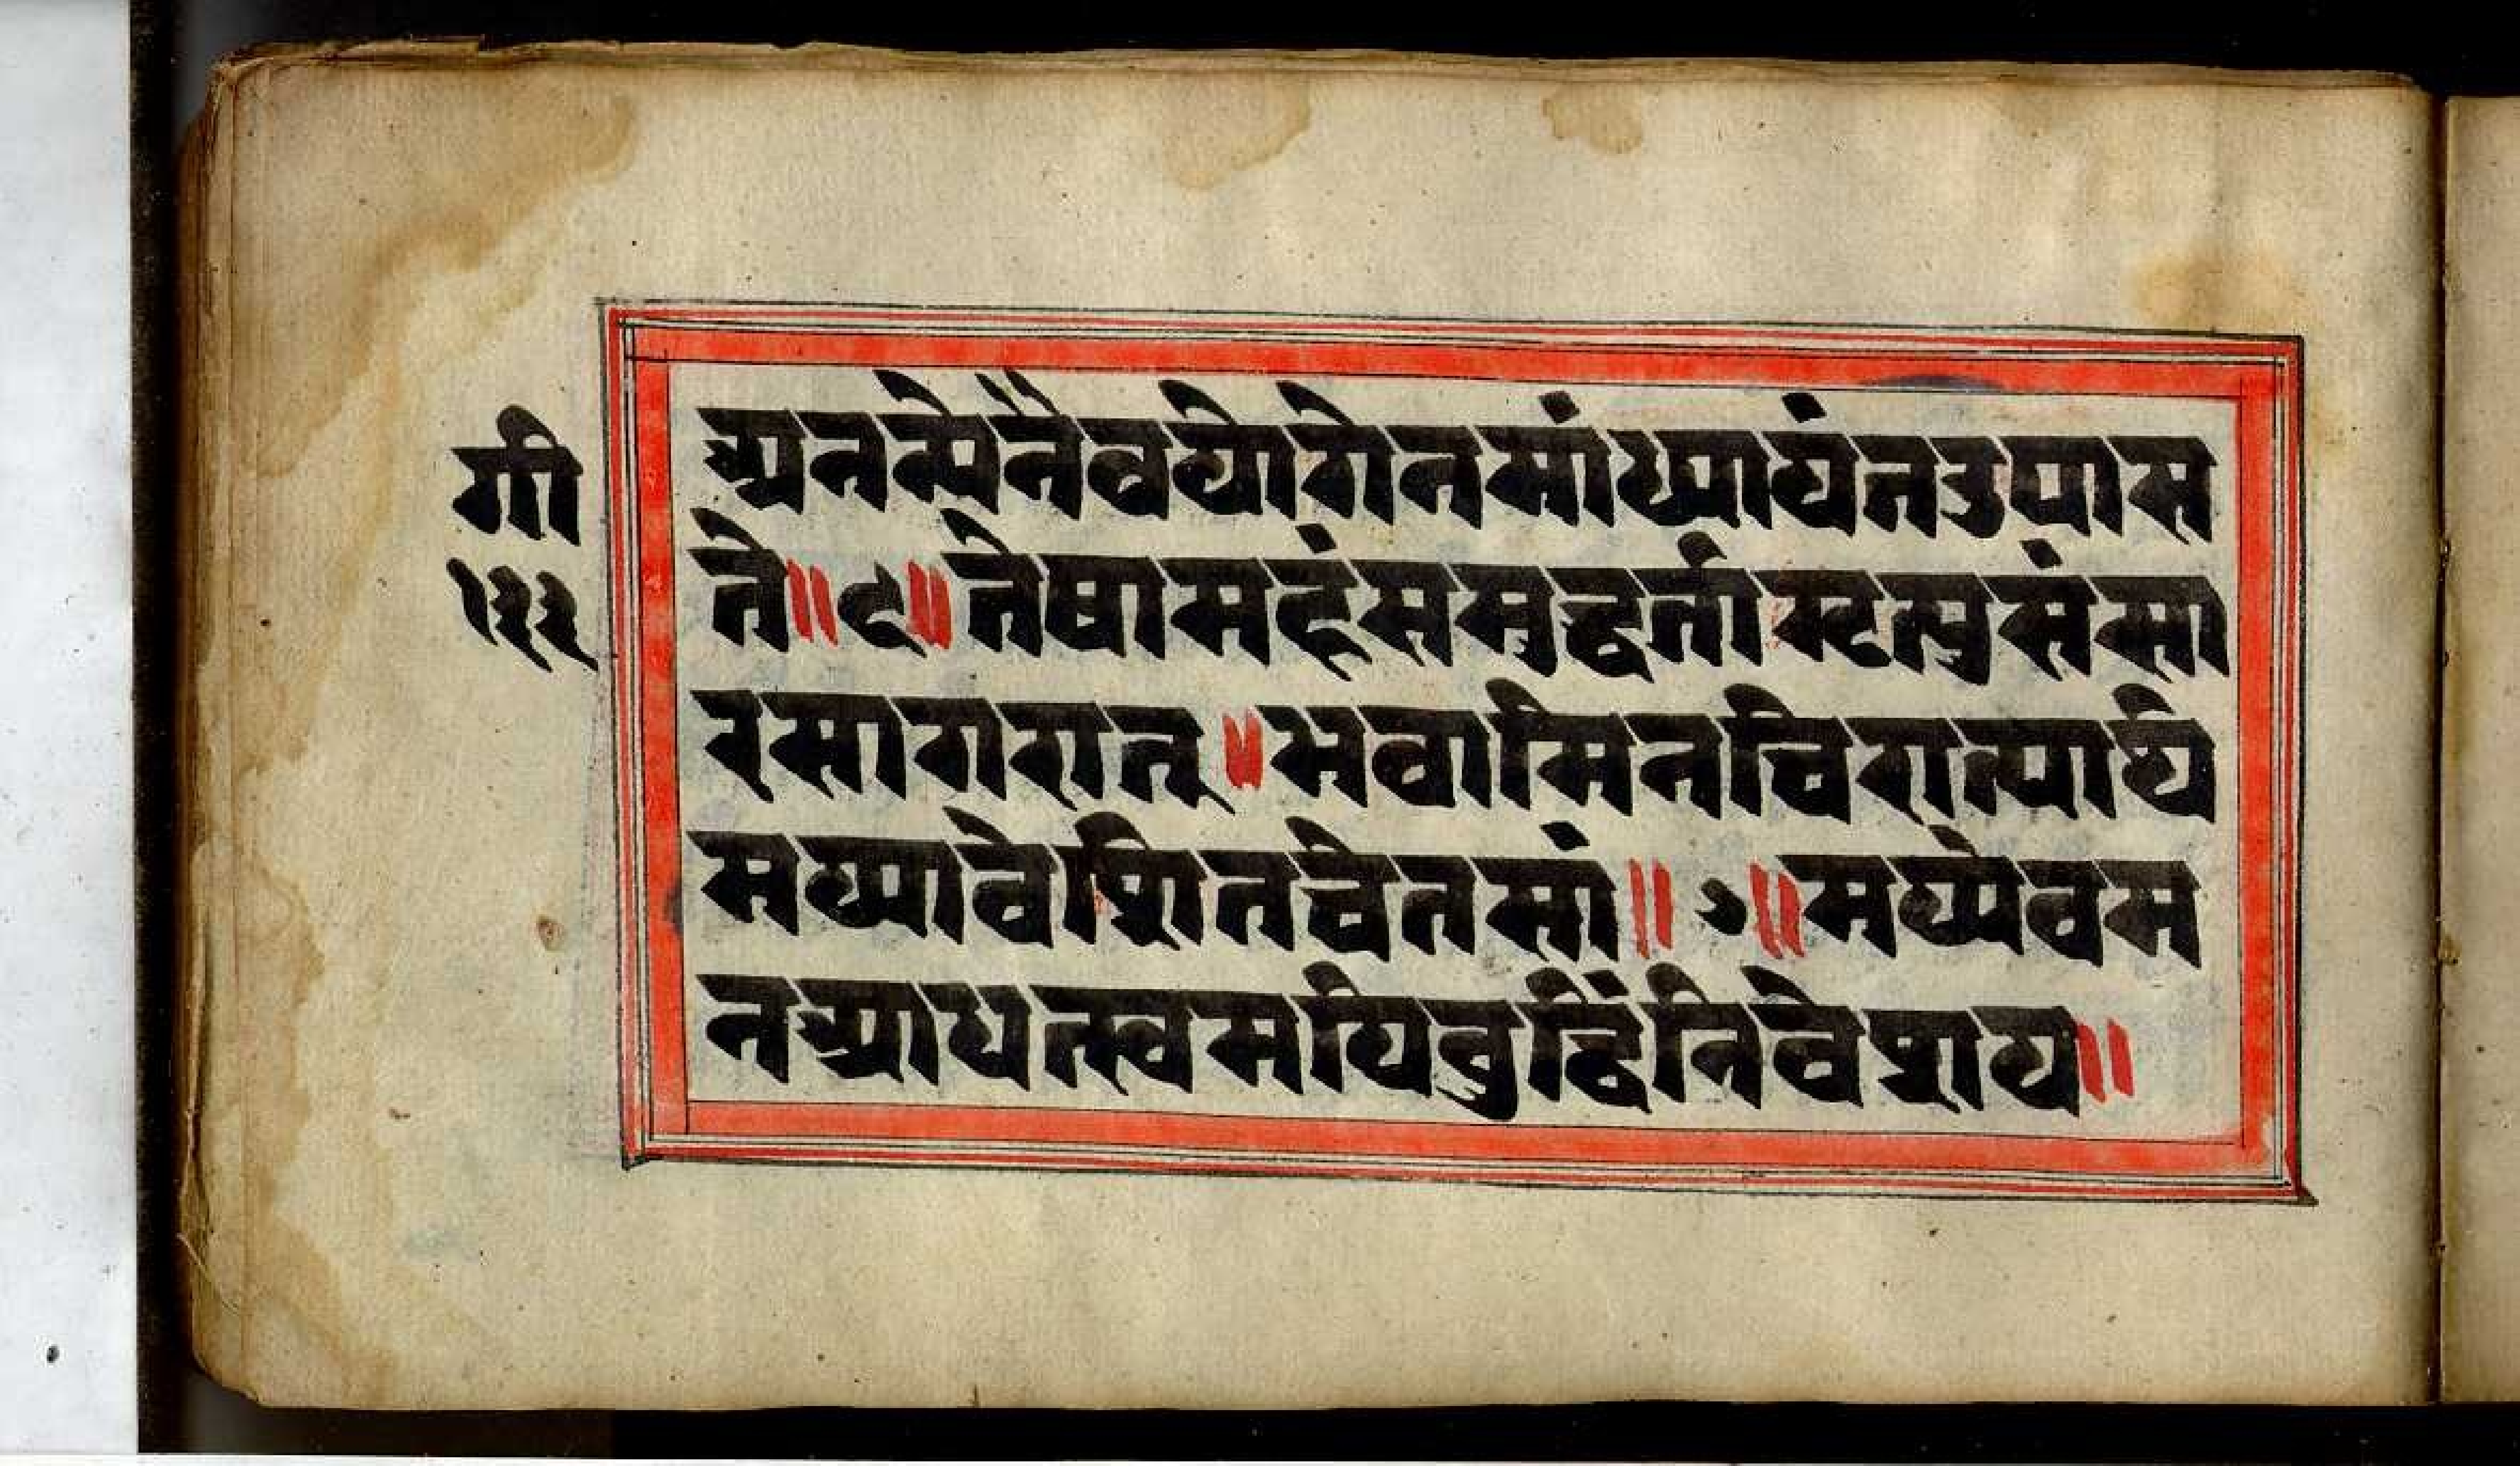 गी
१२२
अनन्येनैवयोगेनमांध्यायंतउपास
ते॥६॥तेषामहंसमुद्धर्तामृत्युसंसा
रसागरात्॥भवामिनचिरात्पार्थ
मय्यावेशितचेतसां॥७॥मय्येवम
नआधत्स्वमयिबुद्धिंनिवेशय॥